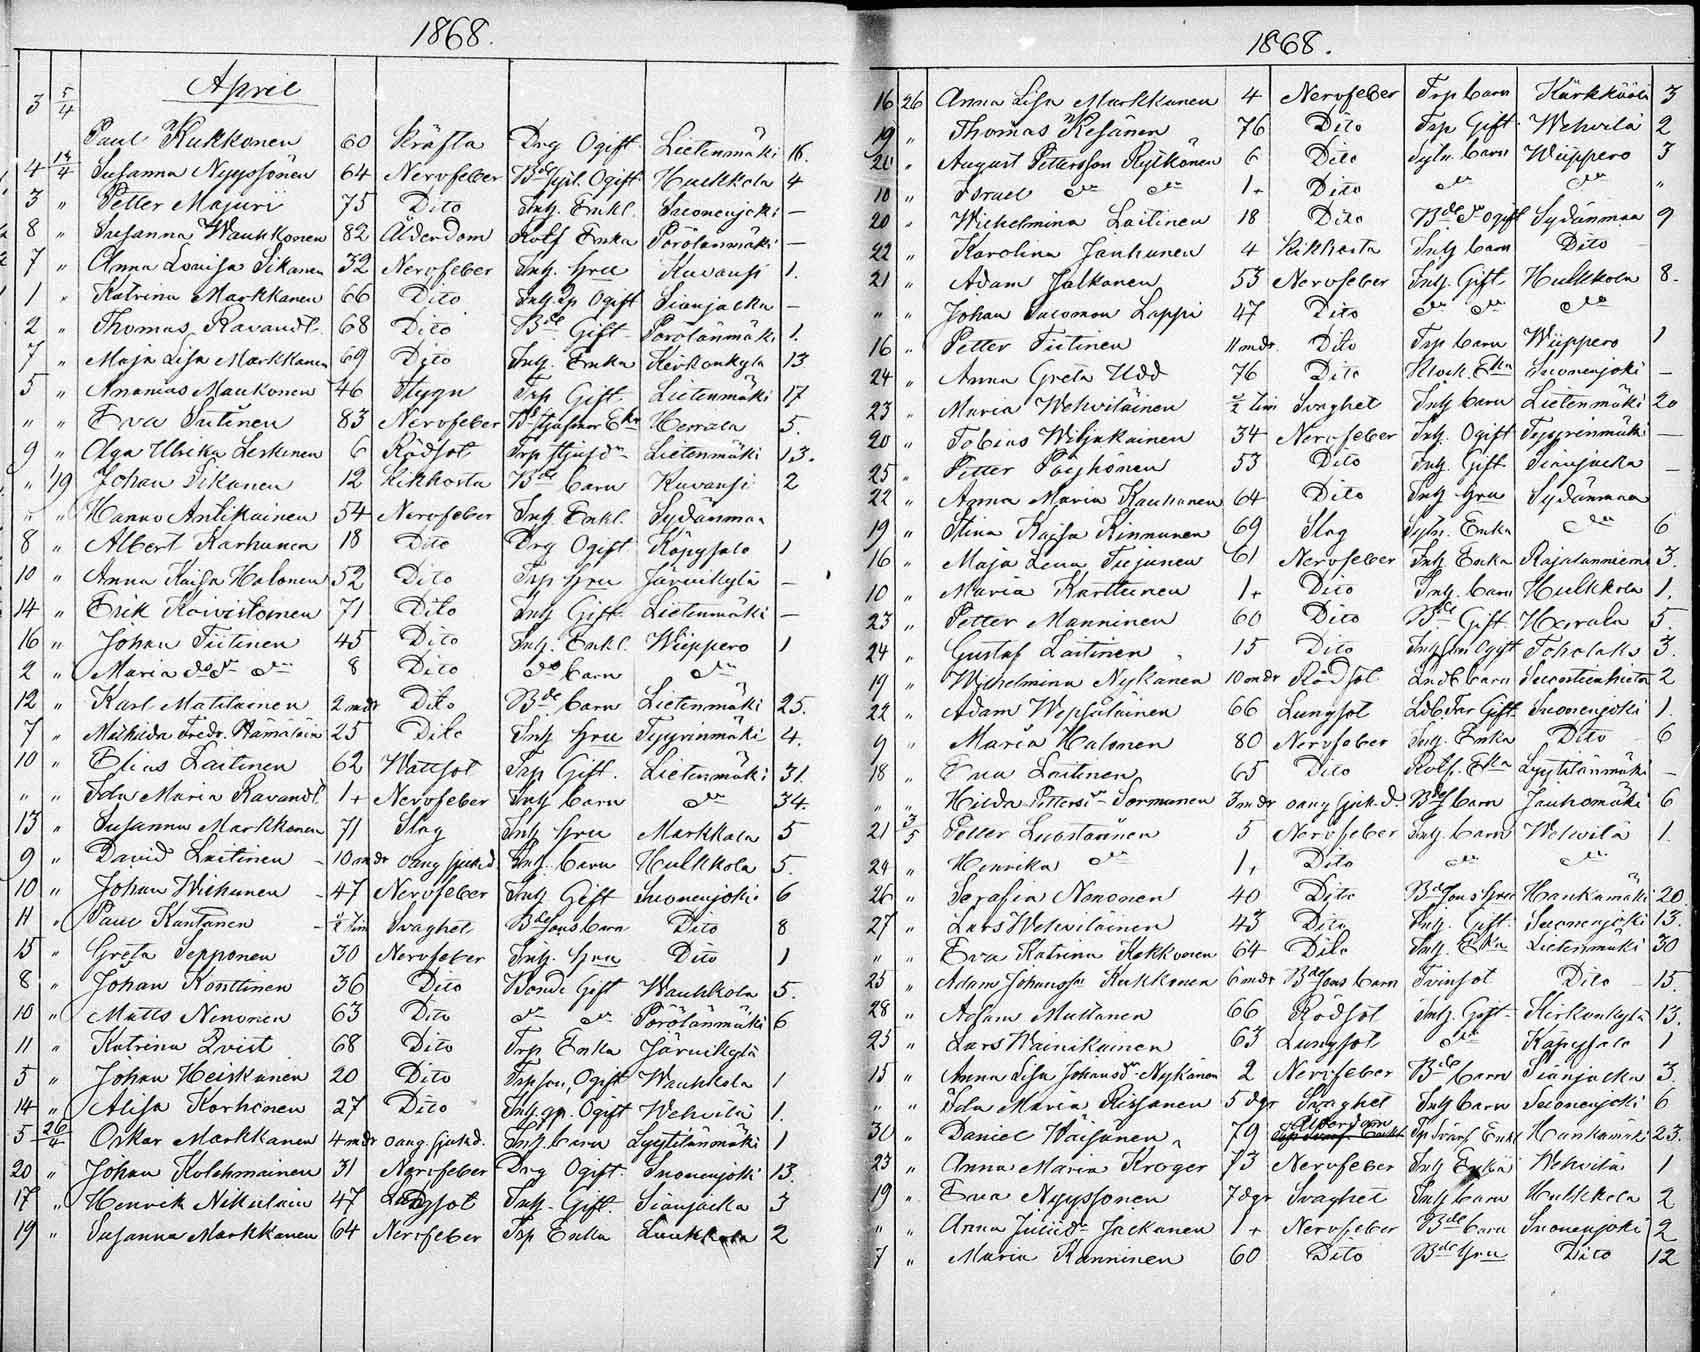 1868.
April
3 5/4
Paul Kukkonen 60 Kräfta Drg Ogift Lietenmäki 16.
4 12/4 Susanna Nyyssönen 64 Nervfeber Ogift Hulkkola 4
3 " Petter Majuri 75 Dito Inh. Enkl. Suonenjoki —
8 " Susanna Wauhkonen 82 Ålderdom Rotf Enka Pörölänmäki —
7 " Anna Lovisa Tikanen 32 Nervfeber Inh. hru Kuvansi 1.
1 " Katrina Markkanen 66 Dito Ogift Sianjacka —
2 " Thomas Ravandt. 68 Dito Bde Gift Pörölänmäki 1.
7 " Maja Lisa Markkanen 69 Dito Inh. Enka Kirkonkyla 13
5 " Ananias Maukonen 46 Stygn Trp Gift Lietenmäki 17
" " Eva Sutinen 83 Nervfeber Herrala 5.
9 " Olga Ulrika Leskinen 6 Rödsot Lietenmäki 13.
" 19 Johan Tikanen 12 Kikhosta Bde barn Kuvansi 2
" " Hannu Antikainen 54 Nervfeber Inh. Enkl. Sydänmaa
8 " Albert Karhunen 18 Dito Drg Ogift Käpysalo 1
10 " Anna Kaisa Halonen 52 Dito Trp hru Järvikylä —
14 " Erik Koivistoinen 71 Dito Inh Gift Lietenmäki —
16 " Johan Tiitinen 45 Dito Inh. Enkl. Wiippero 1
2 " Maria do do 8 Dito do barn do
12 " Karl Matilainen 2 mdr Dito Bde barn Lietenmäki 25.
7 " Mathilda Fredr. Hämäläin 25 Dito Inh hru Tyyrinmäki 4.
10 " Elias Laitinen 62 Wattsot Trp Gift. Lietenmäki 31.
" " Ida Maria Ravandt. 1+ Nervfeber Inh barn do 34.
13 " Susanna Markkanen 71 Slag Inh hru Markkala 5
9 " David Laitinen 10 mdr oang sjukd. Inh. barn Hulkkola 5.
10 " Johan Wichunen 47 Nervfeber Inh Gift Suonenjoki 6
11 " Paul Kantanen 1/2 tim Svaghet Bde sons barn Dito 8
15 " Greta Sepponen 30 Nervfeber Inh. hru Dito 1
8 " Johan Konttinen 36 Dito Bonde Gift Wauhkola 5.
10 " Matts Ninonen 63 Dito do do Pörölänmäki 6
11 " Katrina Qvist 68 Dito Trp Enka Järvikylä
5 " Johan Heiskanen 20 Dito Trp son, Ogift Wauhkola 1
14 " Alisa Korhonen 27 Dito Ogift Wehvilä 1.
5 26/4 Oskar Markkanen 4 mdr oang. sjukd. Inh. barn Lyytilänmäki 1
20 " Johan Kolehmainen 31 Nervfeber Drg Ogift. Suonenjoki 13.
17 " Henrik Nikulain 47 Lungsot Inh. Gift. Sianjacka 3
19 " Susanna Markkanen 64 Nervfeber Trp Enka 2
1868.
16 26 Anna Lisa Markkanen 4 Nervfeber Trp barn 3
19 " Thomas Resänen 76 Dito Trp Gift. Wehvilä 2
20 " August Pettersson Rytkönen 6 Dito Sytn. barn Wiippero 3
10 " Israel do do 1+ Dito do do "
20 " Wilhelmina Laitinen 18 Dito Bde dr ogift Sydänmaa 9
22 " Karolina Janhunen 4 Kikhosta Inh barn Dito
21 " Adam Jalkanen 53 Nervfeber Inh. Gift. Hulkkola 8.
" " Johan Salomon Lappi 47 Dito do do do
16 " Petter Tiitinen 11 mdr Dito Trp barn Wiippero 1
24 " Anna Greta Udd 76 Dito Klock. Eka Suonenjoki —
23 " Maria Wehviläinen 2/2 tim Svaghet Inh barn Lietenmäki 20
20 " Tobias Wiljakainen 34 Nervfeber Inh. Ogift Tyyrinmäki —
25 " Petter Pöyhönen 53 Dito Inh. Gift Sianjacka —
22 " Anna Maria Kauhanen 64 Dito Inh hru Sydänmaa
19 " Stina Kaisa Kinnunen 69 Slag Sytn. Enka do 6
16 " Maja Lena Tiejunen 61 Nervfeber Inh Enka Rajalanniemi 3.
10 " Maria Karttunen 1+ Dito Inh. barn Hulkkola 1.
23 " Petter Manninen 60 Dito Bde Gift. Herrala 5.
24 " Gustaf Laitinen 15 Dito Inh son Ogift Toholaks 3.
19 " Wilhelmina Nykanen 10 mdr Rödsot Lndb barn 2
22 " Adam Wepsäläinen 66 Lungsot Gift. Suonenjoki 1.
9 " Maria Halonen 80 Nervfeber Inh. Enka Dito 6
18 " Eva Laitinen 65 Dito Rotf. Eka Lyytilänmäki —
" " Hilda Pettersdr Sormunen 3 mdr oang sjukd. Bde barn Jauhomäki 6
21 3/5 Petter Luostarinen 5 Nervfeber Inh. barn Wehvilä 1.
24 " Henrika do 1+ Dito do do
26 " Serafia Nenonen 40 Dito Bde sons hru Haukamäki 20.
27 " Lars Wehviläinen 43 Dito Inh. Gift. Suonenjoki 13.
" " Eva Katrina Kokkonen 64 Dito Inh. Eka Lietenmäki 30
25 " Adam Johansson Kukkonen 6 mdr Bde sons barn Tvinsot Dito 15.
28 " Adam Muttanen 66 Rödsot Inh. Gift Kirkonkylä 13.
25 " Lars Wainikainen 63 Lungsot do Käpysalo 1
15 " Anna Lisa Johansdr Nykänen 2 Nervfeber Bde barn Sianjacka 3.
" " Ida Maria Rissanen 5 dgr Svaghet Inh barn Suonenjoki 6
30 " Daniel Wäisänen 79 Ålderdom Enkl Haukamäki 23.
23 " Anna Maria Kroger 73 Nervfeber Inh Enka Wehvilä 1
19 " Eva Nyyssonen 7 dgr Svaghet Inh barn Hulkkola 2
" " Anna Juliidr Jäckanen 1+ Nervfeber Bde barn Suonenjoki 2
7 " Maria Kanninen 60 Dito Bde hru Dito 12